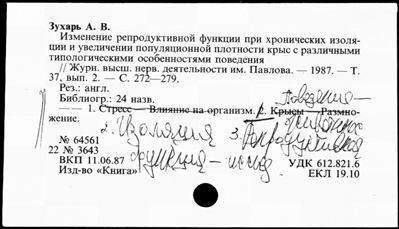 Зухарь А. В.
Изменение репродуктивной функции при хронических изоля-
ции и увеличении популяционной плотности крыс с различными
типологическими особенностями поведения
// Журн. высш. нерв. деятельности им. Павлова. — 1987. — Т.
37, вып. 2. — С. 272—279.
Рез.: англ.
Библиогр.: 24 назв.
— — 1. Стресс — Влияние на организм. 2. Крысы — Размно-
жение.
Поведение—
животных
2. Изоляция 3. Репродуктивная
функция — исслед.
№ 64561
22 № 3643
ВКП 11.06.87
Изд-во «Книга»
УДК 612.821.6
ЕКЛ 19.10